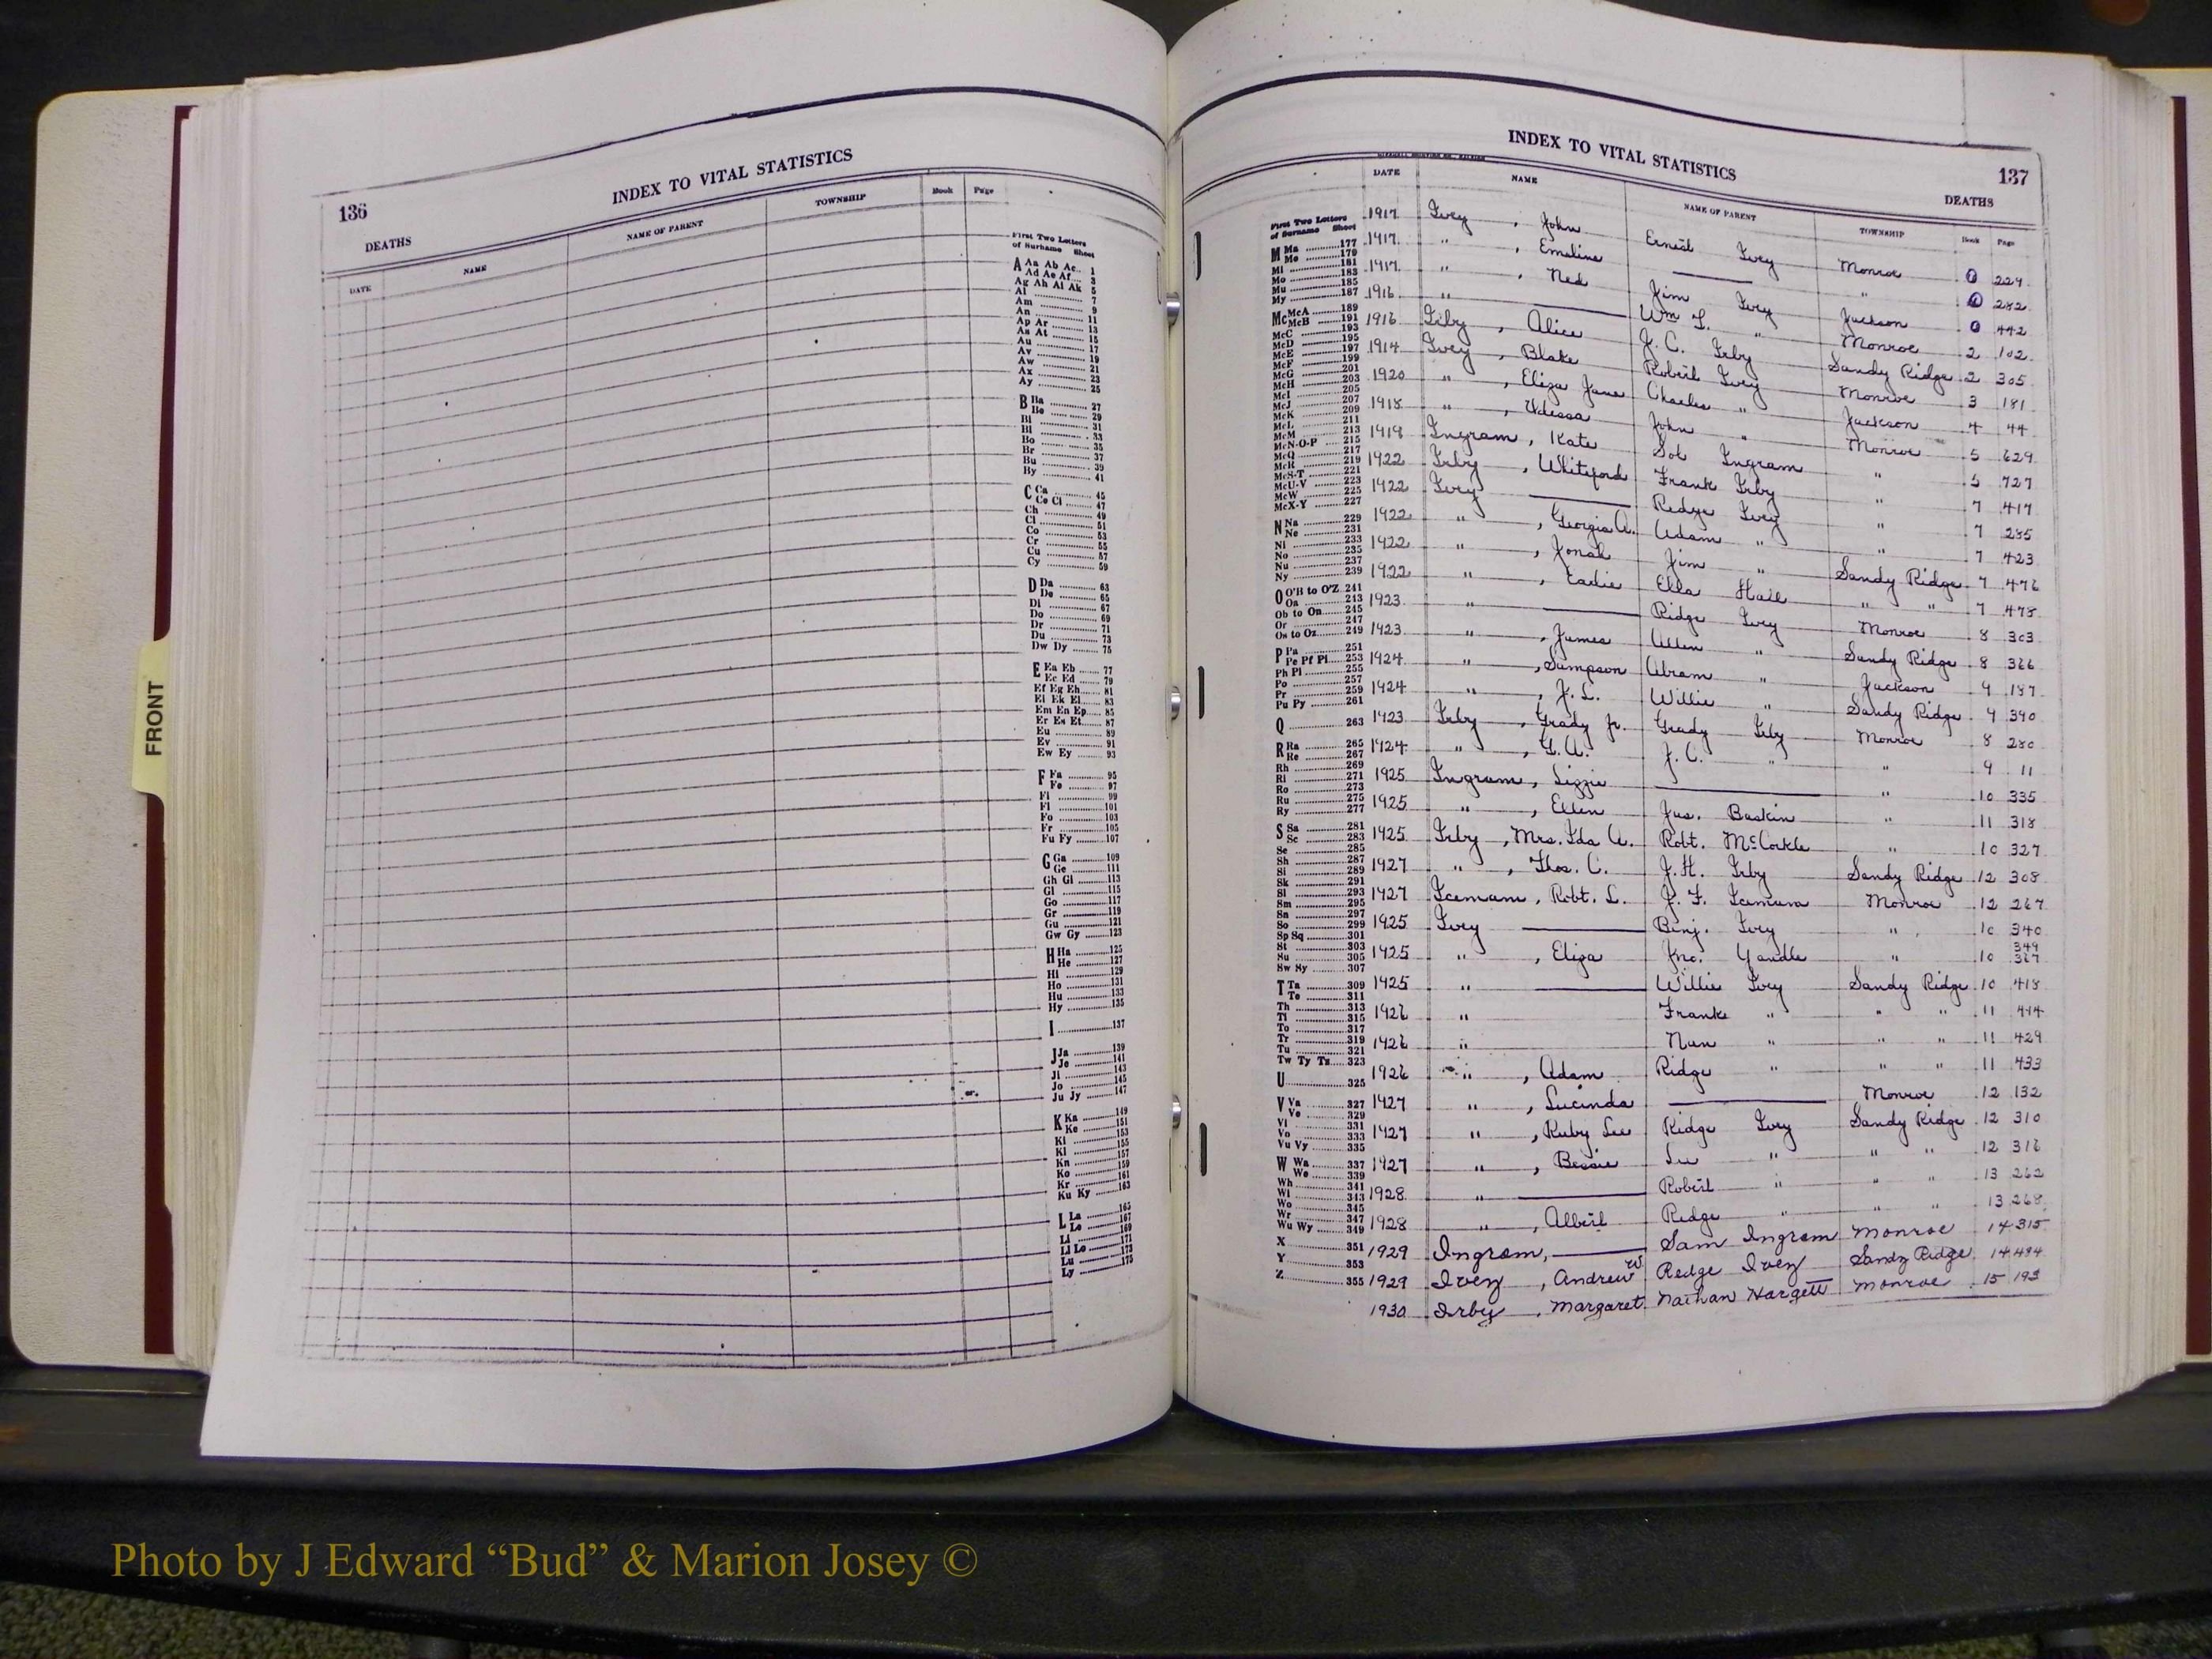 FRONT
136
INDEX TO VITAL STATISTICS
DEATHS
DATE NAME NAME OF PARENT TOWNSHIP Book Page
First Two Letters
of Surname Sheet
A Aa Ab Ac.. 1
Ad Ae Af.... 3
Ag Ah Ai Ak 5
Al ............ 7
Am ............ 9
An ............ 11
Ap Ar ............ 13
As At ............ 15
Au ............ 17
Av ............ 19
Aw ............ 21
Ax ............ 23
Ay ............ 25
B Ba ............ 27
Be ............ 29
Bi ............ 31
Bl ............ 33
Bo ............ 35
Br ............ 37
Bu ............ 39
By ............ 41
C Ca ............ 45
Ce Ci ............ 47
Ch ............ 49
Cl ............ 51
Co ............ 53
Cr ............ 55
Cu ............ 57
Cy ............ 59
D Da ............ 63
De ............ 65
Di ............ 67
Do ............ 69
Dr ............ 71
Du ............ 73
Dw Dy ........ 75
E Ea Eb ........ 77
Ec Ed ........ 79
Ef Eg Eh...... 81
Ei Ek El...... 83
Em En Ep..... 85
Er Es Et...... 87
Eu ............ 89
Ev ............ 91
Ew Ey ........ 93
F Fa ............ 95
Fe ............ 97
Fi ............ 99
Fl ............ 101
Fo ............ 103
Fr ............ 105
Fu Fy ........ 107
G Ga ............ 109
Ge ............ 111
Gh Gi ........ 113
Gl ............ 115
Go ............ 117
Gr ............ 119
Gu ............ 121
Gw Gy ........ 123
H Ha ............ 125
He ............ 127
Hi ............ 129
Ho ............ 131
Hu ............ 133
Hy ............ 135
I ............ 137
J Ja ............ 139
Je ............ 141
Ji ............ 143
Jo ............ 145
Ju Jy ........ 147
K Ka ............ 149
Ke ............ 151
Ki ............ 153
Kl ............ 155
Kn ............ 157
Ko ............ 159
Kr ............ 161
Ku Ky ........ 163
L La ............ 165
Le ............ 167
Li ............ 169
Ll Lo ........ 171
Lu ............ 173
Ly ............ 175
INDEX TO VITAL STATISTICS
137
DEATHS
DATE NAME NAME OF PARENT TOWNSHIP Book Page
First Two Letters
of Surname Sheet
M Ma ............ 177
Me ............ 179
Mi ............ 181
Mo ............ 183
Mu ............ 185
My ............ 187
Mc McA ........ 189
McB ........ 191
McC ........ 193
McD ........ 195
McE ........ 197
McF ........ 199
McG ........ 201
McH ........ 203
McI ........ 205
McJ ........ 207
McK ........ 209
McL ........ 211
McM ........ 213
McN-O-P .... 215
McQ ........ 217
McR ........ 219
McS-T ........ 221
McU-V ........ 223
McW ........ 225
McX-Y ........ 227
N Na ............ 229
Ne ............ 231
Ni ............ 233
No ............ 235
Nu ............ 237
Ny ............ 239
O O'H to O'Z 241
Oa ............ 243
Ob to On..... 245
Or ............ 247
Os to Oz....... 249
P Pa ............ 251
Pe Pf Pi..... 253
Ph Pl ........ 255
Po ............ 257
Pr ............ 259
Pu Py ........ 261
Q ............ 263
R Ra ............ 265
Re ............ 267
Rh ............ 269
Ri ............ 271
Ro ............ 273
Ru ............ 275
Ry ............ 277
S Sa ............ 281
Sc ............ 283
Se ............ 285
Sh ............ 287
Si ............ 289
Sk ............ 291
Sl ............ 293
Sm ............ 295
Sn ............ 297
So ............ 299
Sp Sq ........ 301
St ............ 303
Su ............ 305
Sw Sy ........ 307
T Ta ............ 309
Te ............ 311
Th ............ 313
Ti ............ 315
To ............ 317
Tr ............ 319
Tu ............ 321
Tw Ty Tz.... 323
U ............ 325
V Va ............ 327
Ve ............ 329
Vi ............ 331
Vo ............ 333
Vu Vy ........ 335
W Wa ............ 337
We ............ 339
Wh ............ 341
Wi ............ 343
Wo ............ 345
Wr ............ 347
Wu Wy ........ 349
X ............ 351
Y ............ 353
Z ............ 355
1917 Ivey , John Ernest Ivey Monroe 1 229
1917 " , Emeline —— " 1 282
1917 " , Ned Jim Ivey Jackson 1 442
1916 " —— Wm L. " Monroe 2 102
1916 Irby , Alice J. C. Irby Sandy Ridge 2 305
1914 Ivey , Blake Robert Ivey Monroe 3 181
1920 " , Eliza Jane Charles " Jackson 4 44
1918 " , Udessa John " Monroe 5 629
1919 Ingram , Kate Sol Ingram " 5 727
1922 Irby , Whiteford Frank Irby " 7 417
1922 Ivey —— Redge Ivey " 7 285
1922 " , Georgia A. Adam " " 7 423
1922 " , Jonah Jim " Sandy Ridge 7 476
1922 " , Earlie Ella Hall " " 7 478
1923 " —— Ridge Ivey Monroe 8 303
1923 " , James Allen " Sandy Ridge 8 366
1924 " , Sampson Abram " Jackson 9 187
1924 " , J. L. Willie " Sandy Ridge 9 390
1923 Irby , Grady Jr. Grady Irby Monroe 8 280
1924 " , G. A. J. C. " " 9 11
1925 Ingram , Lizzie —— " 10 335
1925 " , Ellen Jas. Baskin " 11 318
1925 Irby , Mrs. Ida A. Robt. McCorkle " 10 327
1927 " , Thos. C. J. H. Irby Sandy Ridge 12 308
1927 Icemann , Robt. L. J. F. Icemann Monroe 12 267
1925 Ivey —— Benj. Ivey " 10 340
1925 " , Eliza Jno. Yandle " 10 349 367
1925 " —— Willie Ivey Sandy Ridge 10 418
1926 " Frank " " " 11 414
1926 " Nan " " " 11 429
1926 " , Adam Ridge " " " 11 433
1927 " , Lucinda —— Monroe 12 132
1927 " , Ruby Lee Ridge Ivey Sandy Ridge 12 310
1927 " , Bessie Lee " " " 12 316
1928 " —— Robert " " " 13 262
1928 " , Albert Ridge " " " 13 268
1929 Ingram, —— Sam Ingram Monroe 14 315
1929 Ivey , Andrew W Redge Ivey Sandy Ridge 14 484
1930 Irby , Margaret Nathan Hargett Monroe 15 193
Photo by J Edward “Bud” & Marion Josey ©